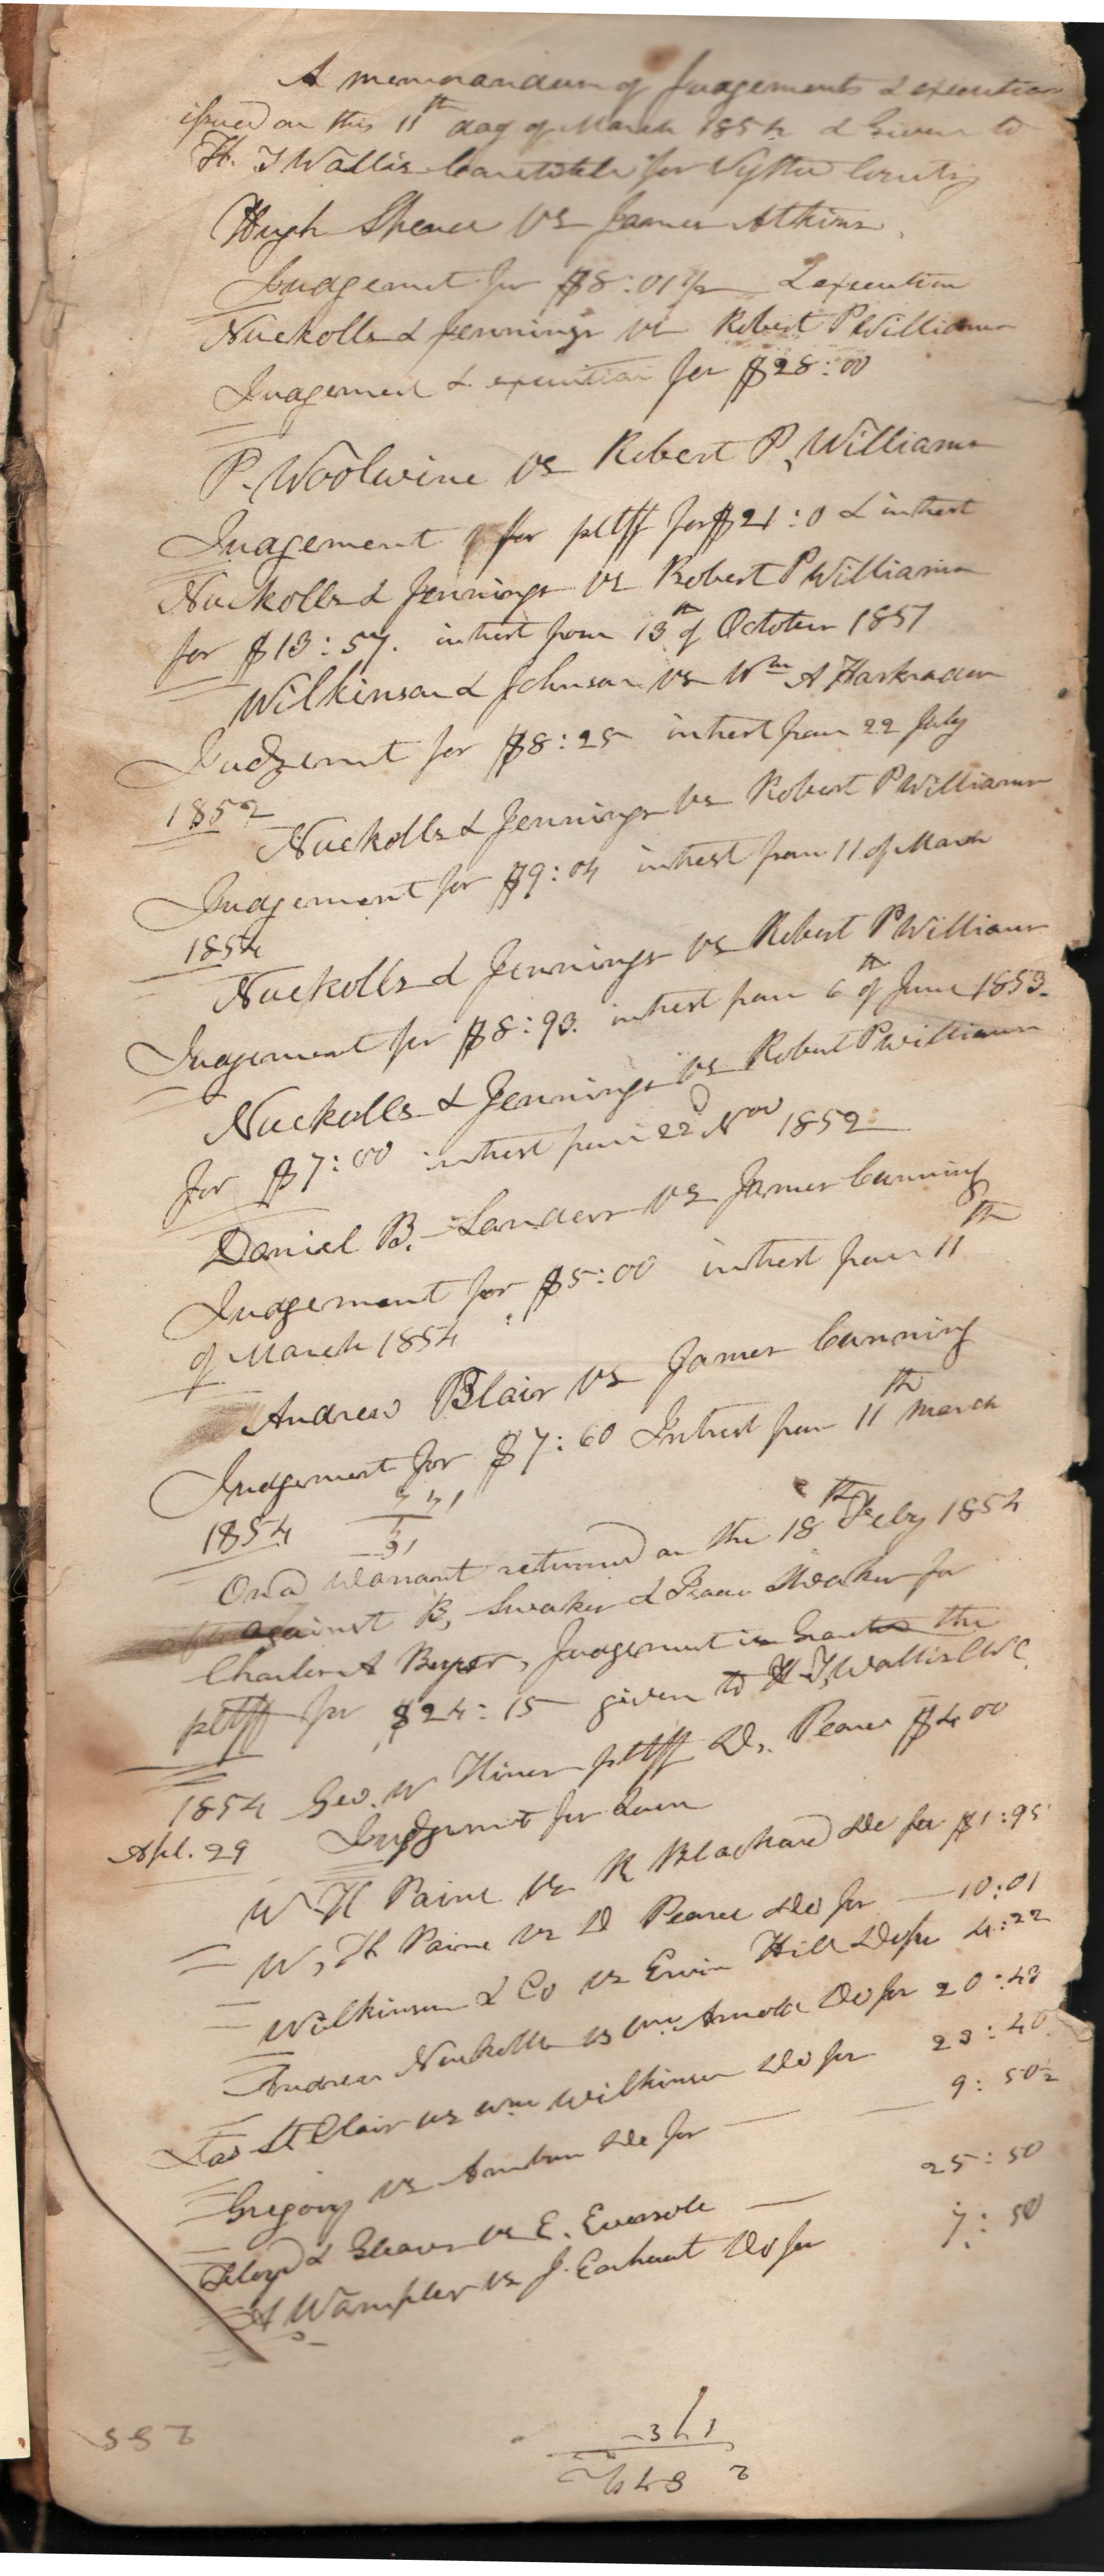 A memorandum of Judgements & execution
issued on this 11th day of March 1854 & Given to
H. J Wallis Constable for Wythe County
Hugh Spence vs James Atkins.
Judgemnt for $8:01½ & execution
Nuckolls & Jennings vs Robert P Williams
Judgement & execution for $28:00
P. Woolwine vs Robert P, Williams
Judgement for pltff for $21:0 & intrest
Nuckolls & Jennings vs Robert P Williams
for $13:57. intrest from 13th of October 1851
Wilkinson & Johnson vs Wm A Harkrader
Judgemnt for $8:25 intrest from 22 July
1852
Nuckolls & Jennings vs Robert P Williams
Judgement for $9:04 intrest from 11 of March
1854
Nuckolls & Jennings vs Robert P Williams
Judgement for $8:93. intrest from 6th of June 1853.
Nuckolls & Jennings vs Robert P Williams
for $7:00 intrest from 22d Nov 1852
Daniel B. Sanders vs James Cunning
Judgement for $5:00 intrest from 11th
of March 1854
Andrew Blair vs James Cunning
Judgement for $7:60 Intrest from 11th March
1854
On a Warrant returned on the 18th Feby 1854
against B, Swaker & Isaac Swaker for
Charles A Beyer, Judgement is Granted the
pltff for $24:15 given to H. J, Wallis C W C
1854 Geo. W Hiner pltff D. Pearce $4 00
Apl. 29 Judgemnt for Same
W H Paine vs R Blackard Do for $1:95
W, H Paine vs D Pearce Do for — 10:01
Wilkinson & Co vs Ervin Hill Do for 4:22
Andrew Nuckolls vs Wm Arnold Do for 20:43
Jas St Clair vs Wm Wilkinson Do for 23:40
Gregory vs Do for — 9:50½
Floyd & Gleaves vs E. Eversole — 25:50
A Wampler vs J. Earhart Do for 7:50